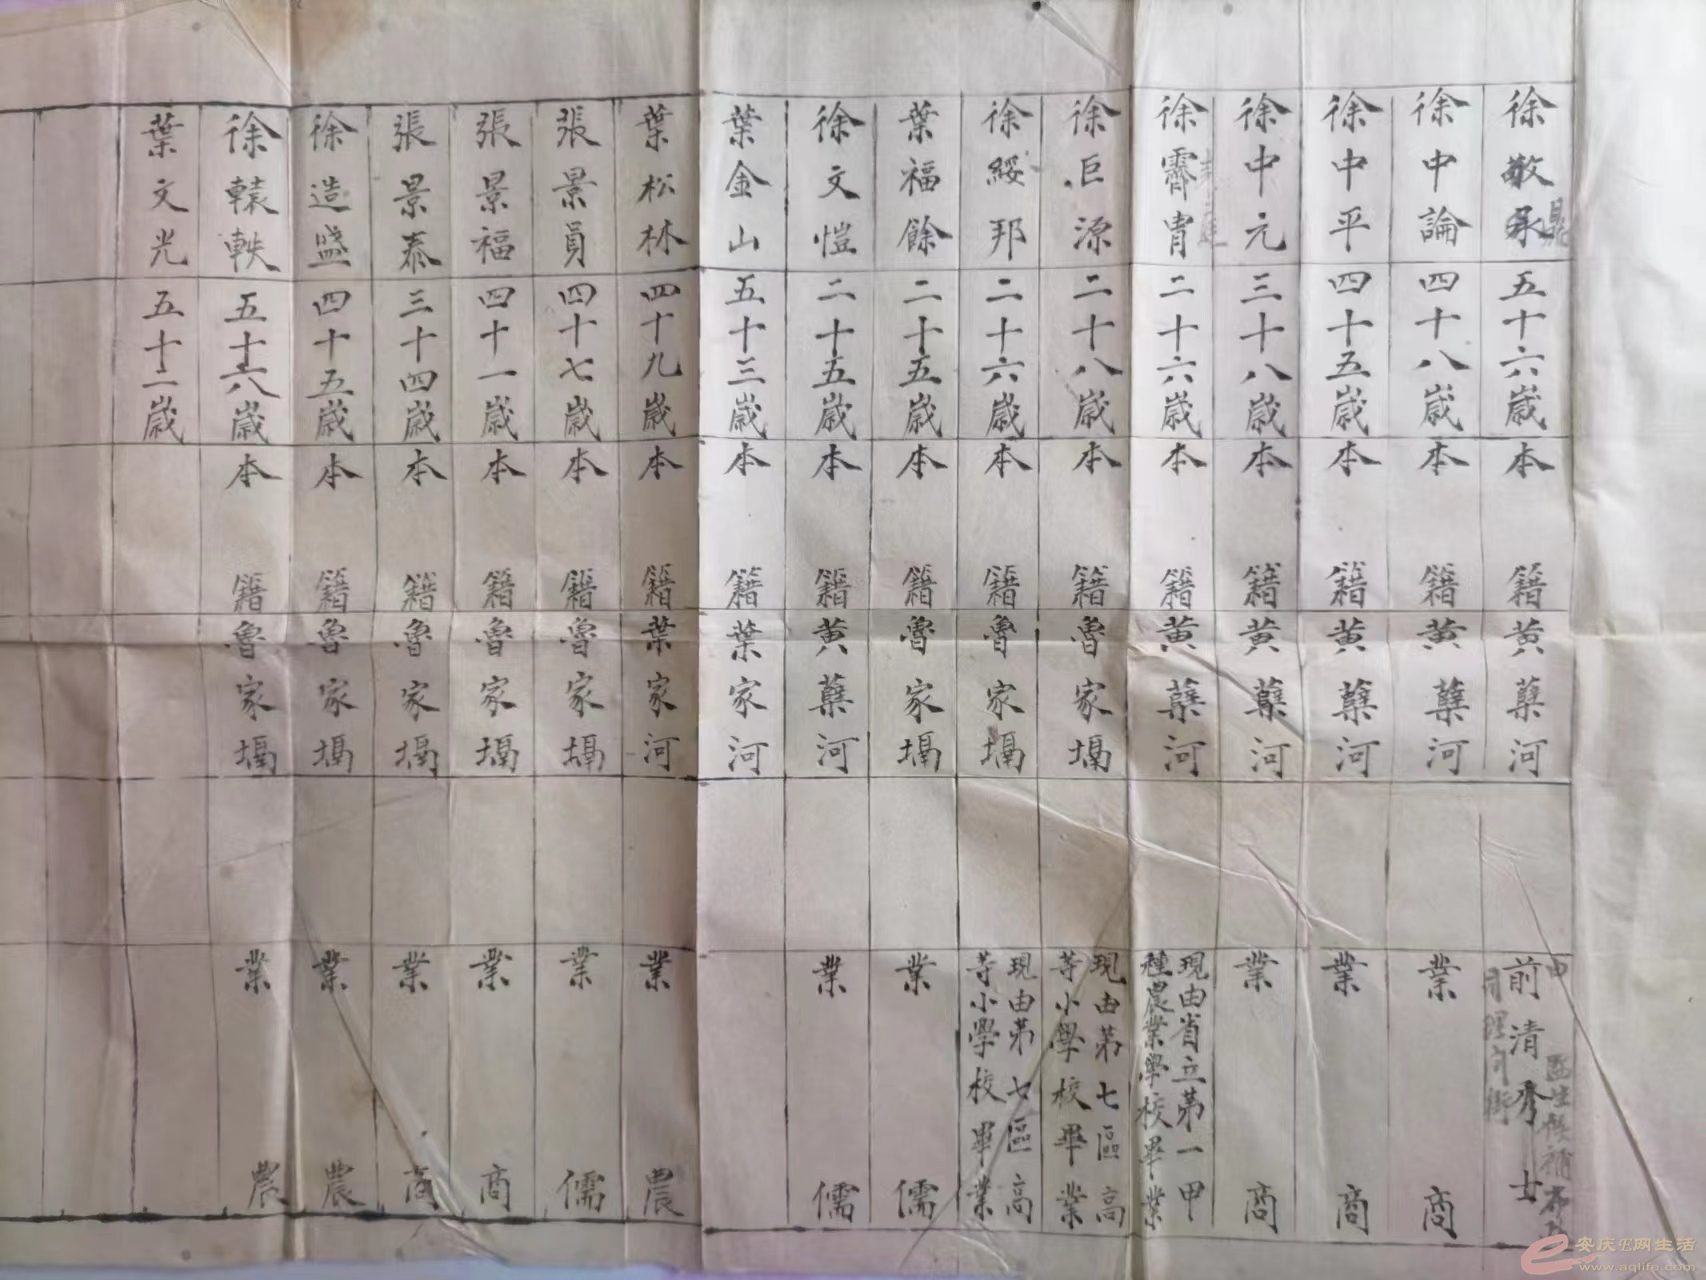 徐敬承 五十六歲 本籍 黄蘖河 前清秀士
徐中論 四十八歲 本籍 黄蘖河 業商
徐中平 四十五歲 本籍 黄蘖河 業商
徐中元 三十八歲 本籍 黄蘖河 業商
徐霽胄 二十六歲 本籍 黄蘖河 現由省立第一甲種農業學校畢業
徐巨源 二十八歲 本籍 魯家塥 現由第七區高等小學校畢業
徐綏邦 二十六歲 本籍 魯家塥 現由第七區高等小學校畢業
葉福餘 二十五歲 本籍 魯家塥 業儒
徐文愷 二十五歲 本籍 黄蘖河 業儒
葉金山 五十三歲 本籍 葉家河
葉松林 四十九歲 本籍 葉家河 業農
張景員 四十七歲 本籍 魯家塥 業儒
張景福 四十一歲 本籍 魯家塥 業商
張景泰 三十四歲 本籍 魯家塥 業商
徐造盛 四十五歲 本籍 魯家塥 業農
徐轅軼 五十六八歲 本籍 魯家塥 業農
葉文光 五十二歲
安庆E网生活
www.aqlife.com